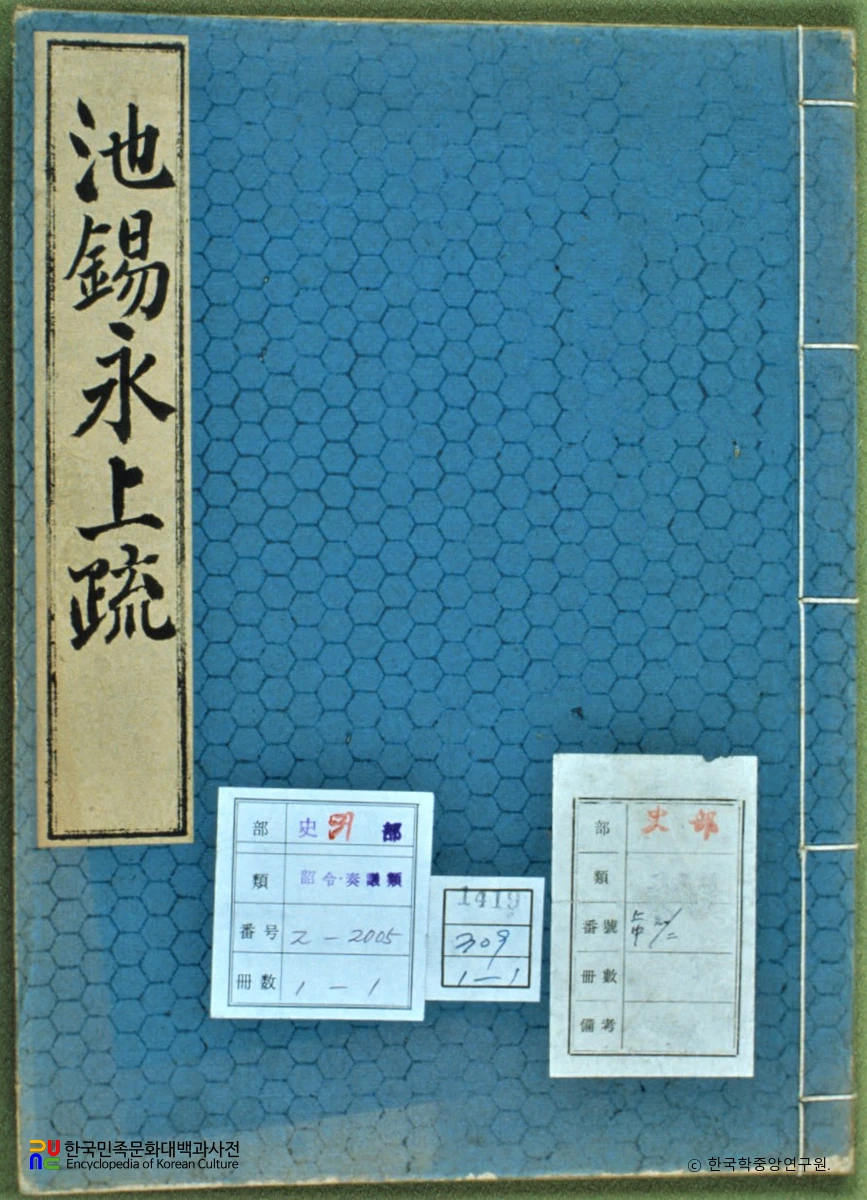 池錫永上疏
部 史 部
類 詔令·奏議類
番号 2-2005
冊数 1-1
1419
309
1-1
部 史部
類
番號
冊數
備考
한국민족문화대백과사전
Encyclopedia of Korean Culture
ⓒ 한국학중앙연구원.